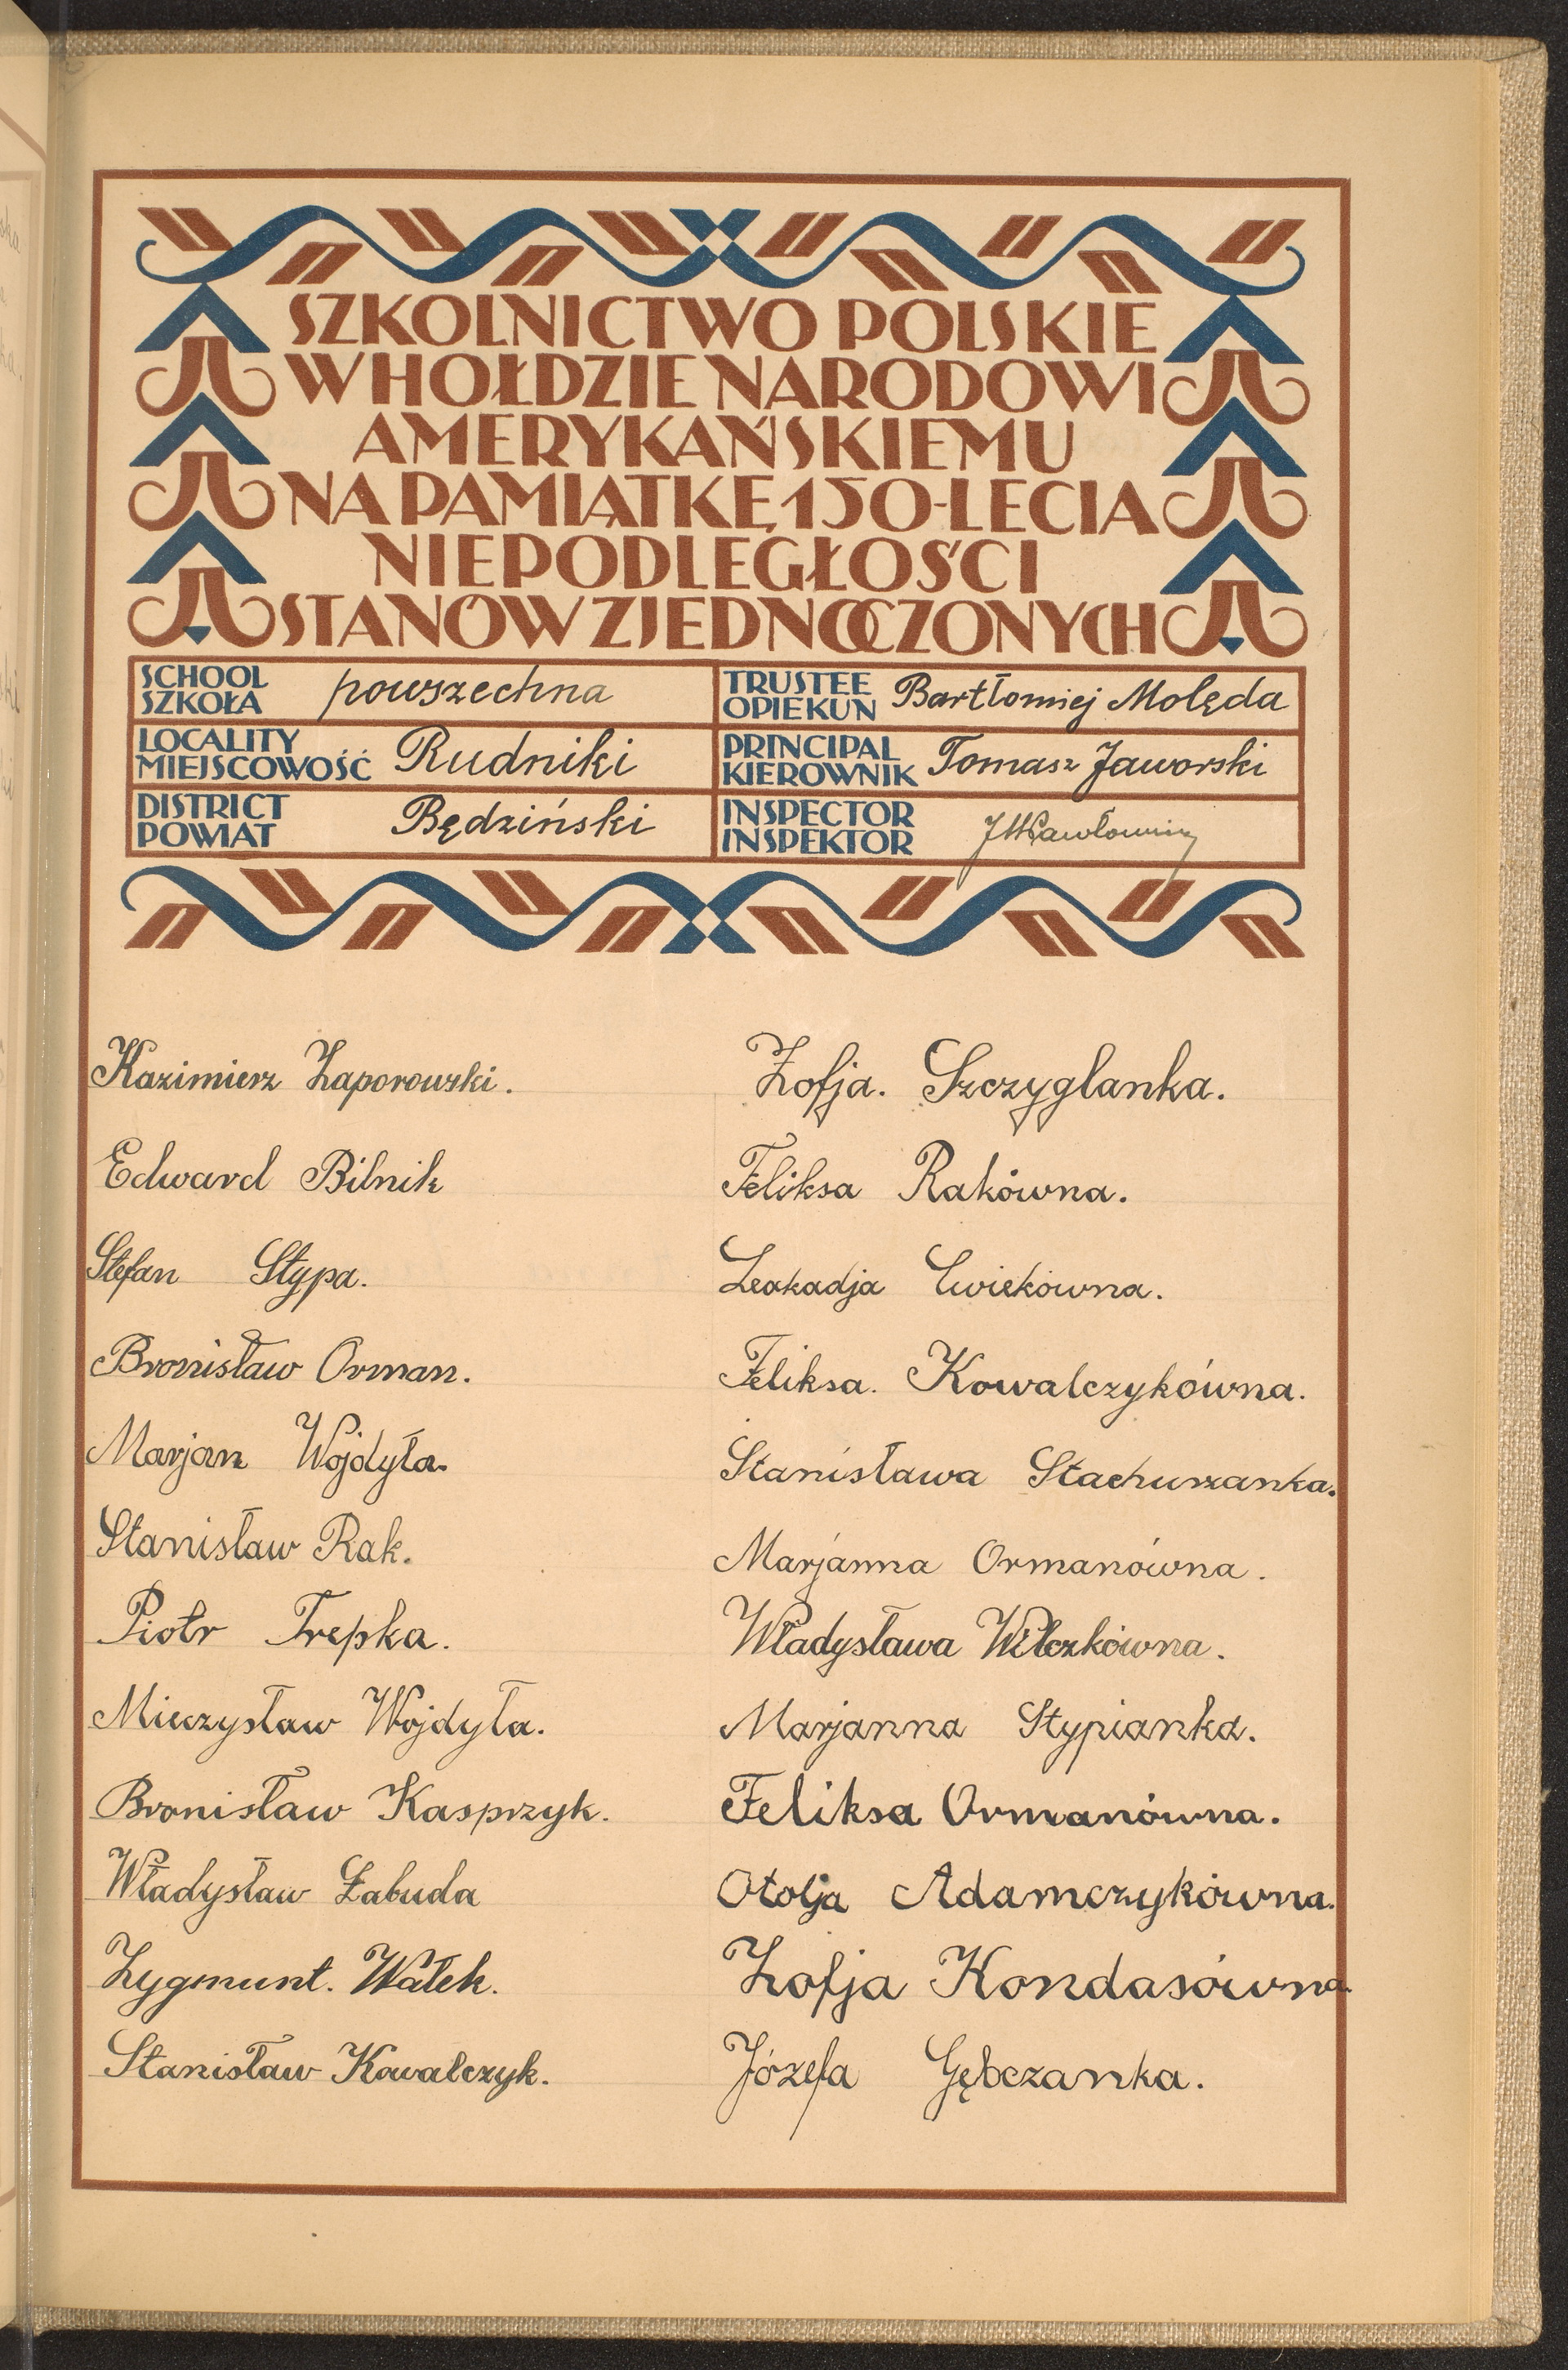 SZKOLNICTWO POLSKIE
W HOŁDZIE NARODOWI
AMERYKAŃSKIEMU
NA PAMIĄTKĘ 150-LECIA
NIEPODLEGŁOŚCI
STANÓW ZJEDNOCZONYCH
SCHOOL
SZKOŁA
powszechna
TRUSTEE
OPIEKUN
Bartłomiej Molęda
LOCALITY
MIEJSCOWOŚĆ
Rudniki
PRINCIPAL
KIEROWNIK
Tomasz Jaworski
DISTRICT
POWIAT
Będziński
INSPECTOR
INSPEKTOR
Kazimierz Zaporowski.
Edward Bilnik
Stefan Stypa.
Bronisław Orman.
Marjan Wojdyła.
Stanisław Rak.
Piotr Trepka.
Mieczysław Wojdyła.
Bronisław Kasprzyk.
Władysław Łabuda
Zygmunt. Wałek.
Stanisław Kowalczyk.
Zofja. Szczyglanka.
Feliksa Rakówna.
Leokadja Cwiekówna.
Feliksa. Kowalczykówna.
Stanisława Stachurzanka.
Marjanna Ormanówna.
Władysława Wilczkówna.
Marjanna Stypianka.
Feliksa Ormanówna.
Otolja Adamczykówna.
Zofja Kondasówna.
Józefa Gębczanka.